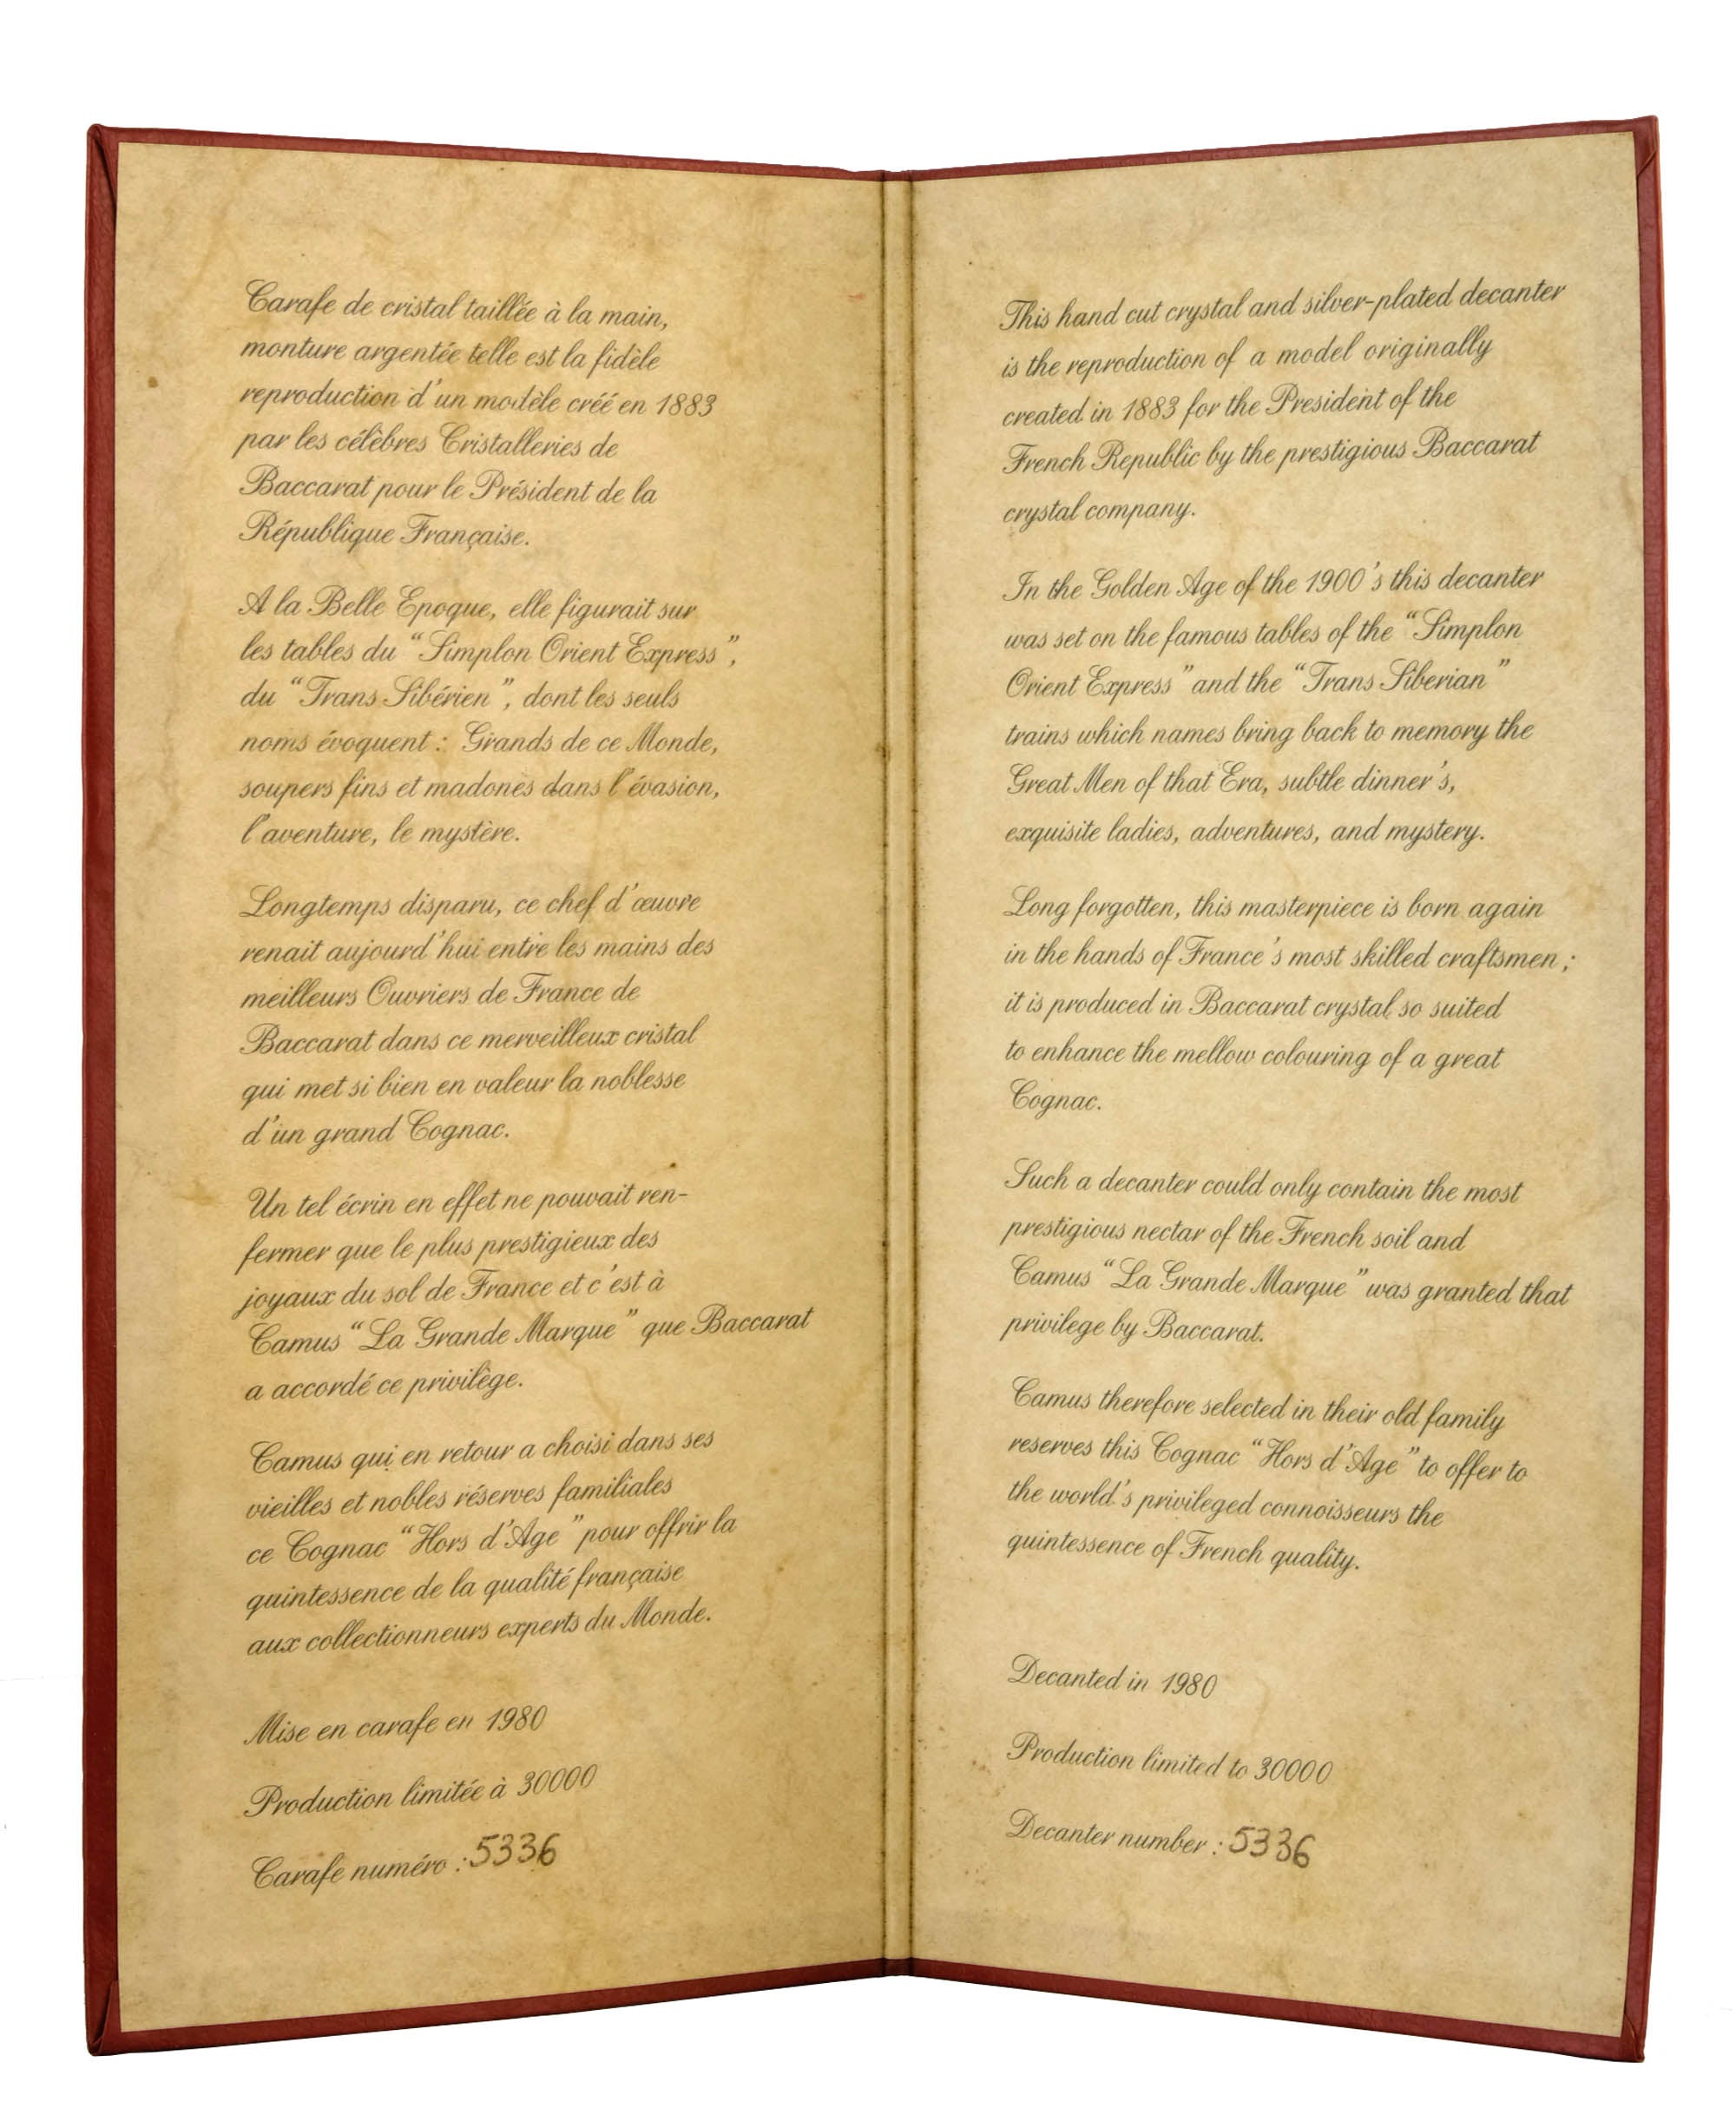 Carafe de cristal taillée à la main,
monture argentée telle est la fidèle
reproduction d'un modèle créé en 1883
par les célèbres Cristalleries de
Baccarat pour le Président de la
République Française.
A la Belle Epoque, elle figurait sur
les tables du "Simplon Orient Express",
du "Trans Sibérien", dont les seuls
noms évoquent : Grands de ce Monde,
soupers fins et madones dans l'évasion,
l'aventure, le mystère.
Longtemps disparu, ce chef d'œuvre
renait aujourd'hui entre les mains des
meilleurs Ouvriers de France de
Baccarat dans ce merveilleux cristal
qui met si bien en valeur la noblesse
d'un grand Cognac.
Un tel écrin en effet ne pouvait ren-
fermer que le plus prestigieux des
joyaux du sol de France et c'est à
Camus "La Grande Marque" que Baccarat
a accordé ce privilège.
Camus qui en retour a choisi dans ses
vieilles et nobles réserves familiales
ce Cognac "Hors d'Age" pour offrir la
quintessence de la qualité française
aux collectionneurs experts du Monde.
Mise en carafe en 1980
Production limitée à 30000
Carafe numéro : 5336
This hand cut crystal and silver-plated decanter
is the reproduction of a model originally
created in 1883 for the President of the
French Republic by the prestigious Baccarat
crystal company.
In the Golden Age of the 1900's this decanter
was set on the famous tables of the "Simplon
Orient Express" and the "Trans Siberian"
trains which names bring back to memory the
Great Men of that Era, subtle dinner's,
exquisite ladies, adventures, and mystery.
Long forgotten, this masterpiece is born again
in the hands of France's most skilled craftsmen ;
it is produced in Baccarat crystal so suited
to enhance the mellow colouring of a great
Cognac.
Such a decanter could only contain the most
prestigious nectar of the French soil and
Camus "La Grande Marque" was granted that
privilege by Baccarat.
Camus therefore selected in their old family
reserves this Cognac "Hors d'Age" to offer to
the world's privileged connoisseurs the
quintessence of French quality.
Decanted in 1980
Production limited to 30000
Decanter number : 5336